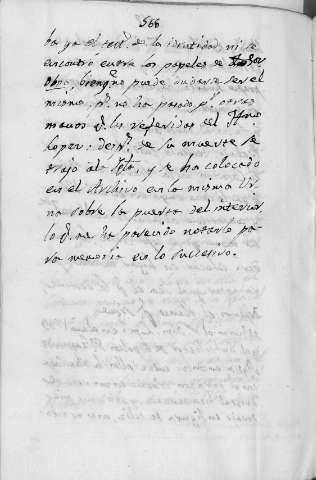 568
ba ya el test.º de la identidad, ni se
encontró entre los papeles de
bien q.e no puede dudarse ser el
mismo, p.s no ha pasado p.r otras
manos q.e las referidas el Yllmo
Lopez: desp.s de su muerte se
trajo al Dpto, y se ha colocado
en el Archivo en la misma Ur
na sobre la puerta del interior
lo q.e me ha parecido notarlo pa
ra memoria en lo sucesivo.